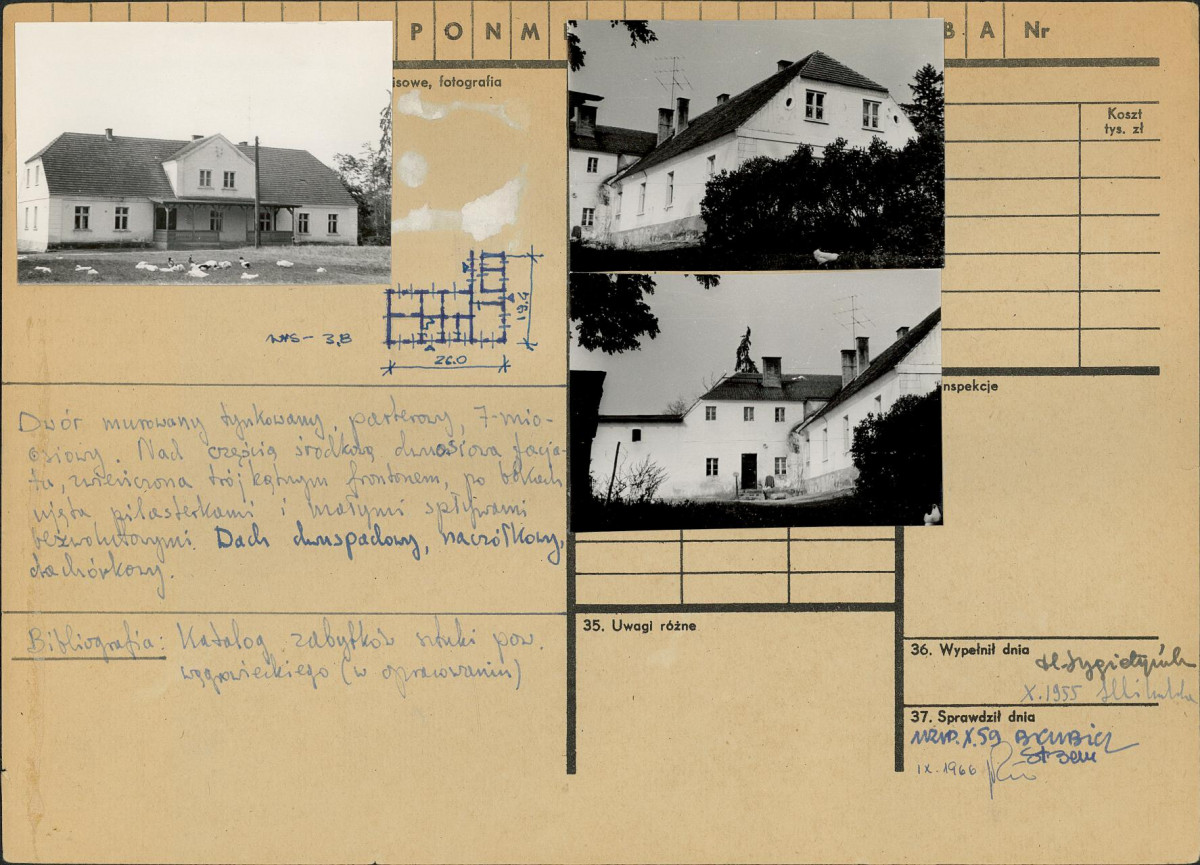 P O N M
B A Nr
isowe, fotografia
Koszt
tys. zł
19.4
3,8
26.0
nspekcje
Dwór murowany tynkowany, parterowy, 7-mio-
osiowy. Nad częścią środkową dwuosiowa facja-
ta, zwieńczona trójkątnym frontonem, po bokach
ujęta pilasterkami i małymi spływami
bezwolutowymi. Dach dwuspadowy, naczółkowy,
dachówkowy.
Bibliografia: Katalog zabytków sztuki pow.
wągrowieckiego (w opracowaniu)
35. Uwagi różne
36. Wypełnił dnia
X.1955
37. Sprawdził dnia
X.59
IX.1966